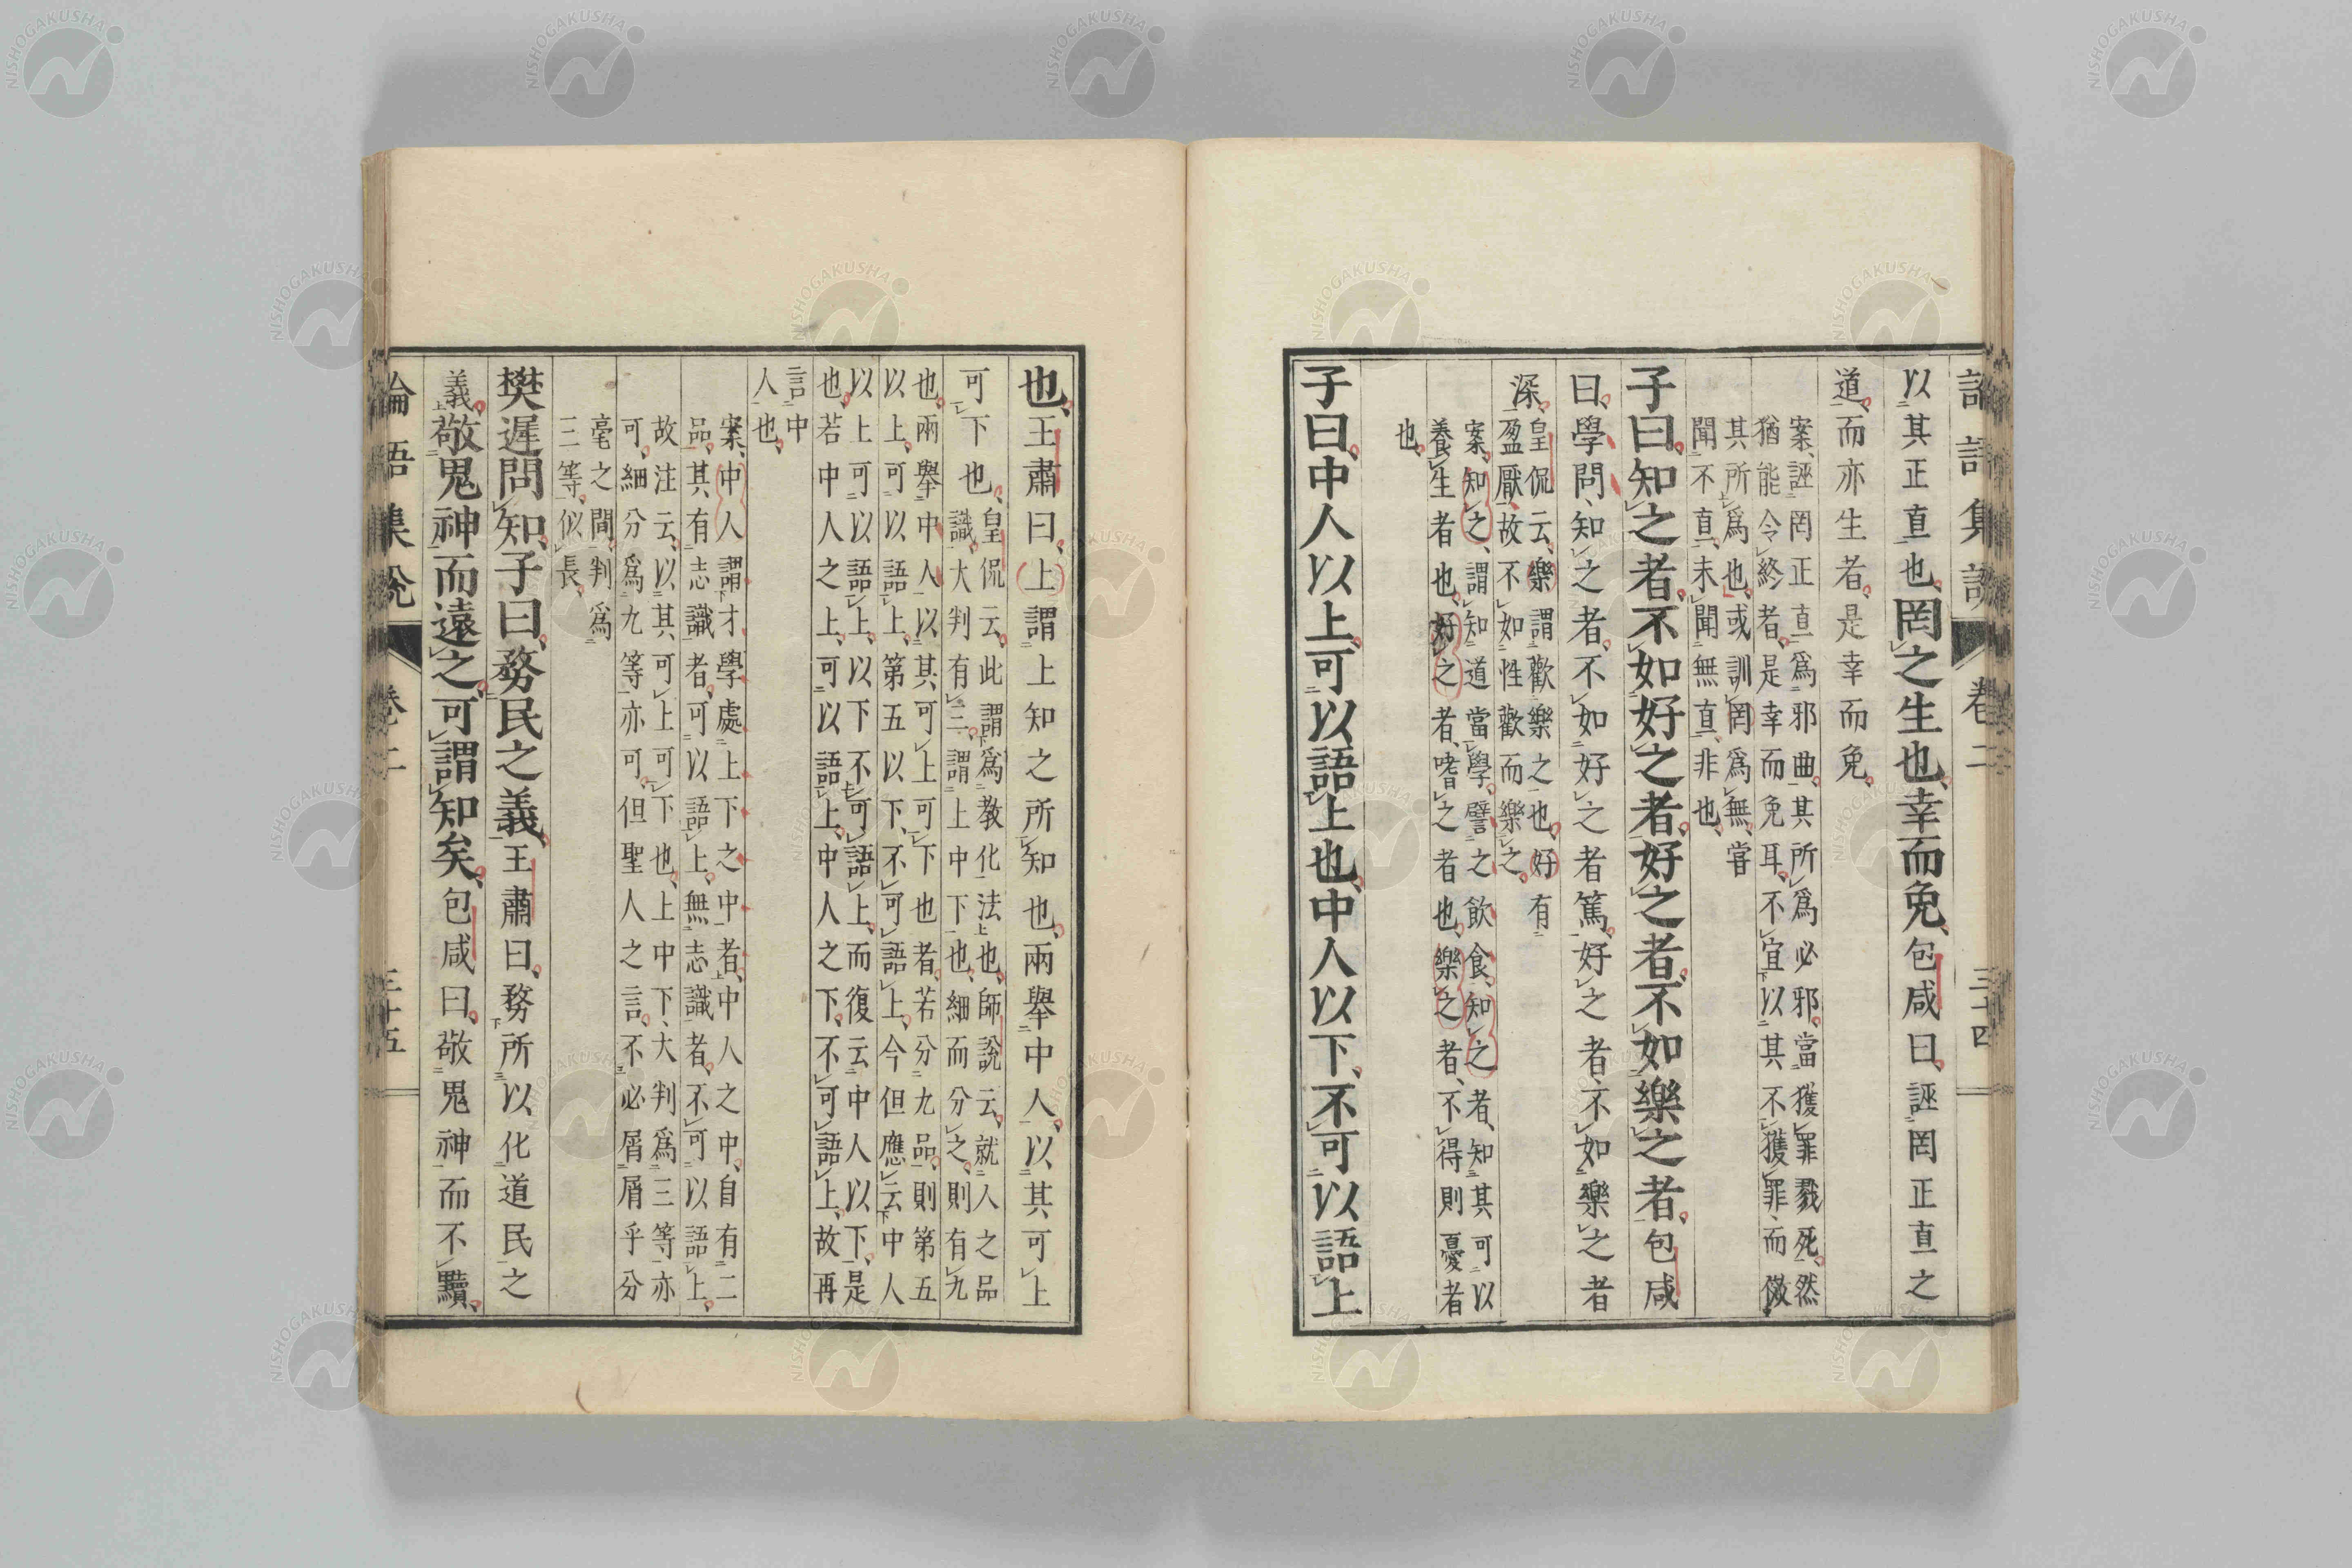 論語集說 卷二 三十四
以其正直也罔之生也幸而免包咸曰誣罔正直之
道而亦生者是幸而免
案誣罔正直爲邪曲其所爲必邪當獲罪戮死然
猶能令終者是幸而免耳不宜以其不獲罪而傚
其所爲也或訓罔爲無甞
聞不直未聞無直非也
子曰知之者不如好之者好之者不如樂之者包咸
曰學問知之者不如好之者篤好之者不如樂之者
深皇侃云樂謂歡樂之也好有
盈厭故不如性歡而樂之
案知之謂知道當學譬之飲食知之者知其可以
養生者也好之者嗜之者也樂之者不得則憂者
也
子曰中人以上可以語上也中人以下不可以語上
也王肅曰上謂上知之所知也兩舉中人以其可上
可下也皇侃云此謂爲教化法也師說云就人之品
識大判有三謂上中下也細而分之則有九
也兩舉中人以其可上可下也者若分九品則第五
以上可以語上第五以下不可語上今但應云中人
以上可以語上以下不可語上而復云中人以下是
也若中人之上可以語上中人之下不可語上故再
言中
人也
案中人謂才學處上下之中者中人之中自有二
品其有志識者可以語上無志識者不可以語上
故注云以其可上可下也上中下大判爲三等亦
可細分爲九等亦可但聖人之言不必屑屑乎分
毫之間判爲
三等似長
樊遲問知子曰務民之義王肅曰務所以化道民之
義敬鬼神而遠之可謂知矣包咸曰敬鬼神而不黷
論語集說 卷二 三十五